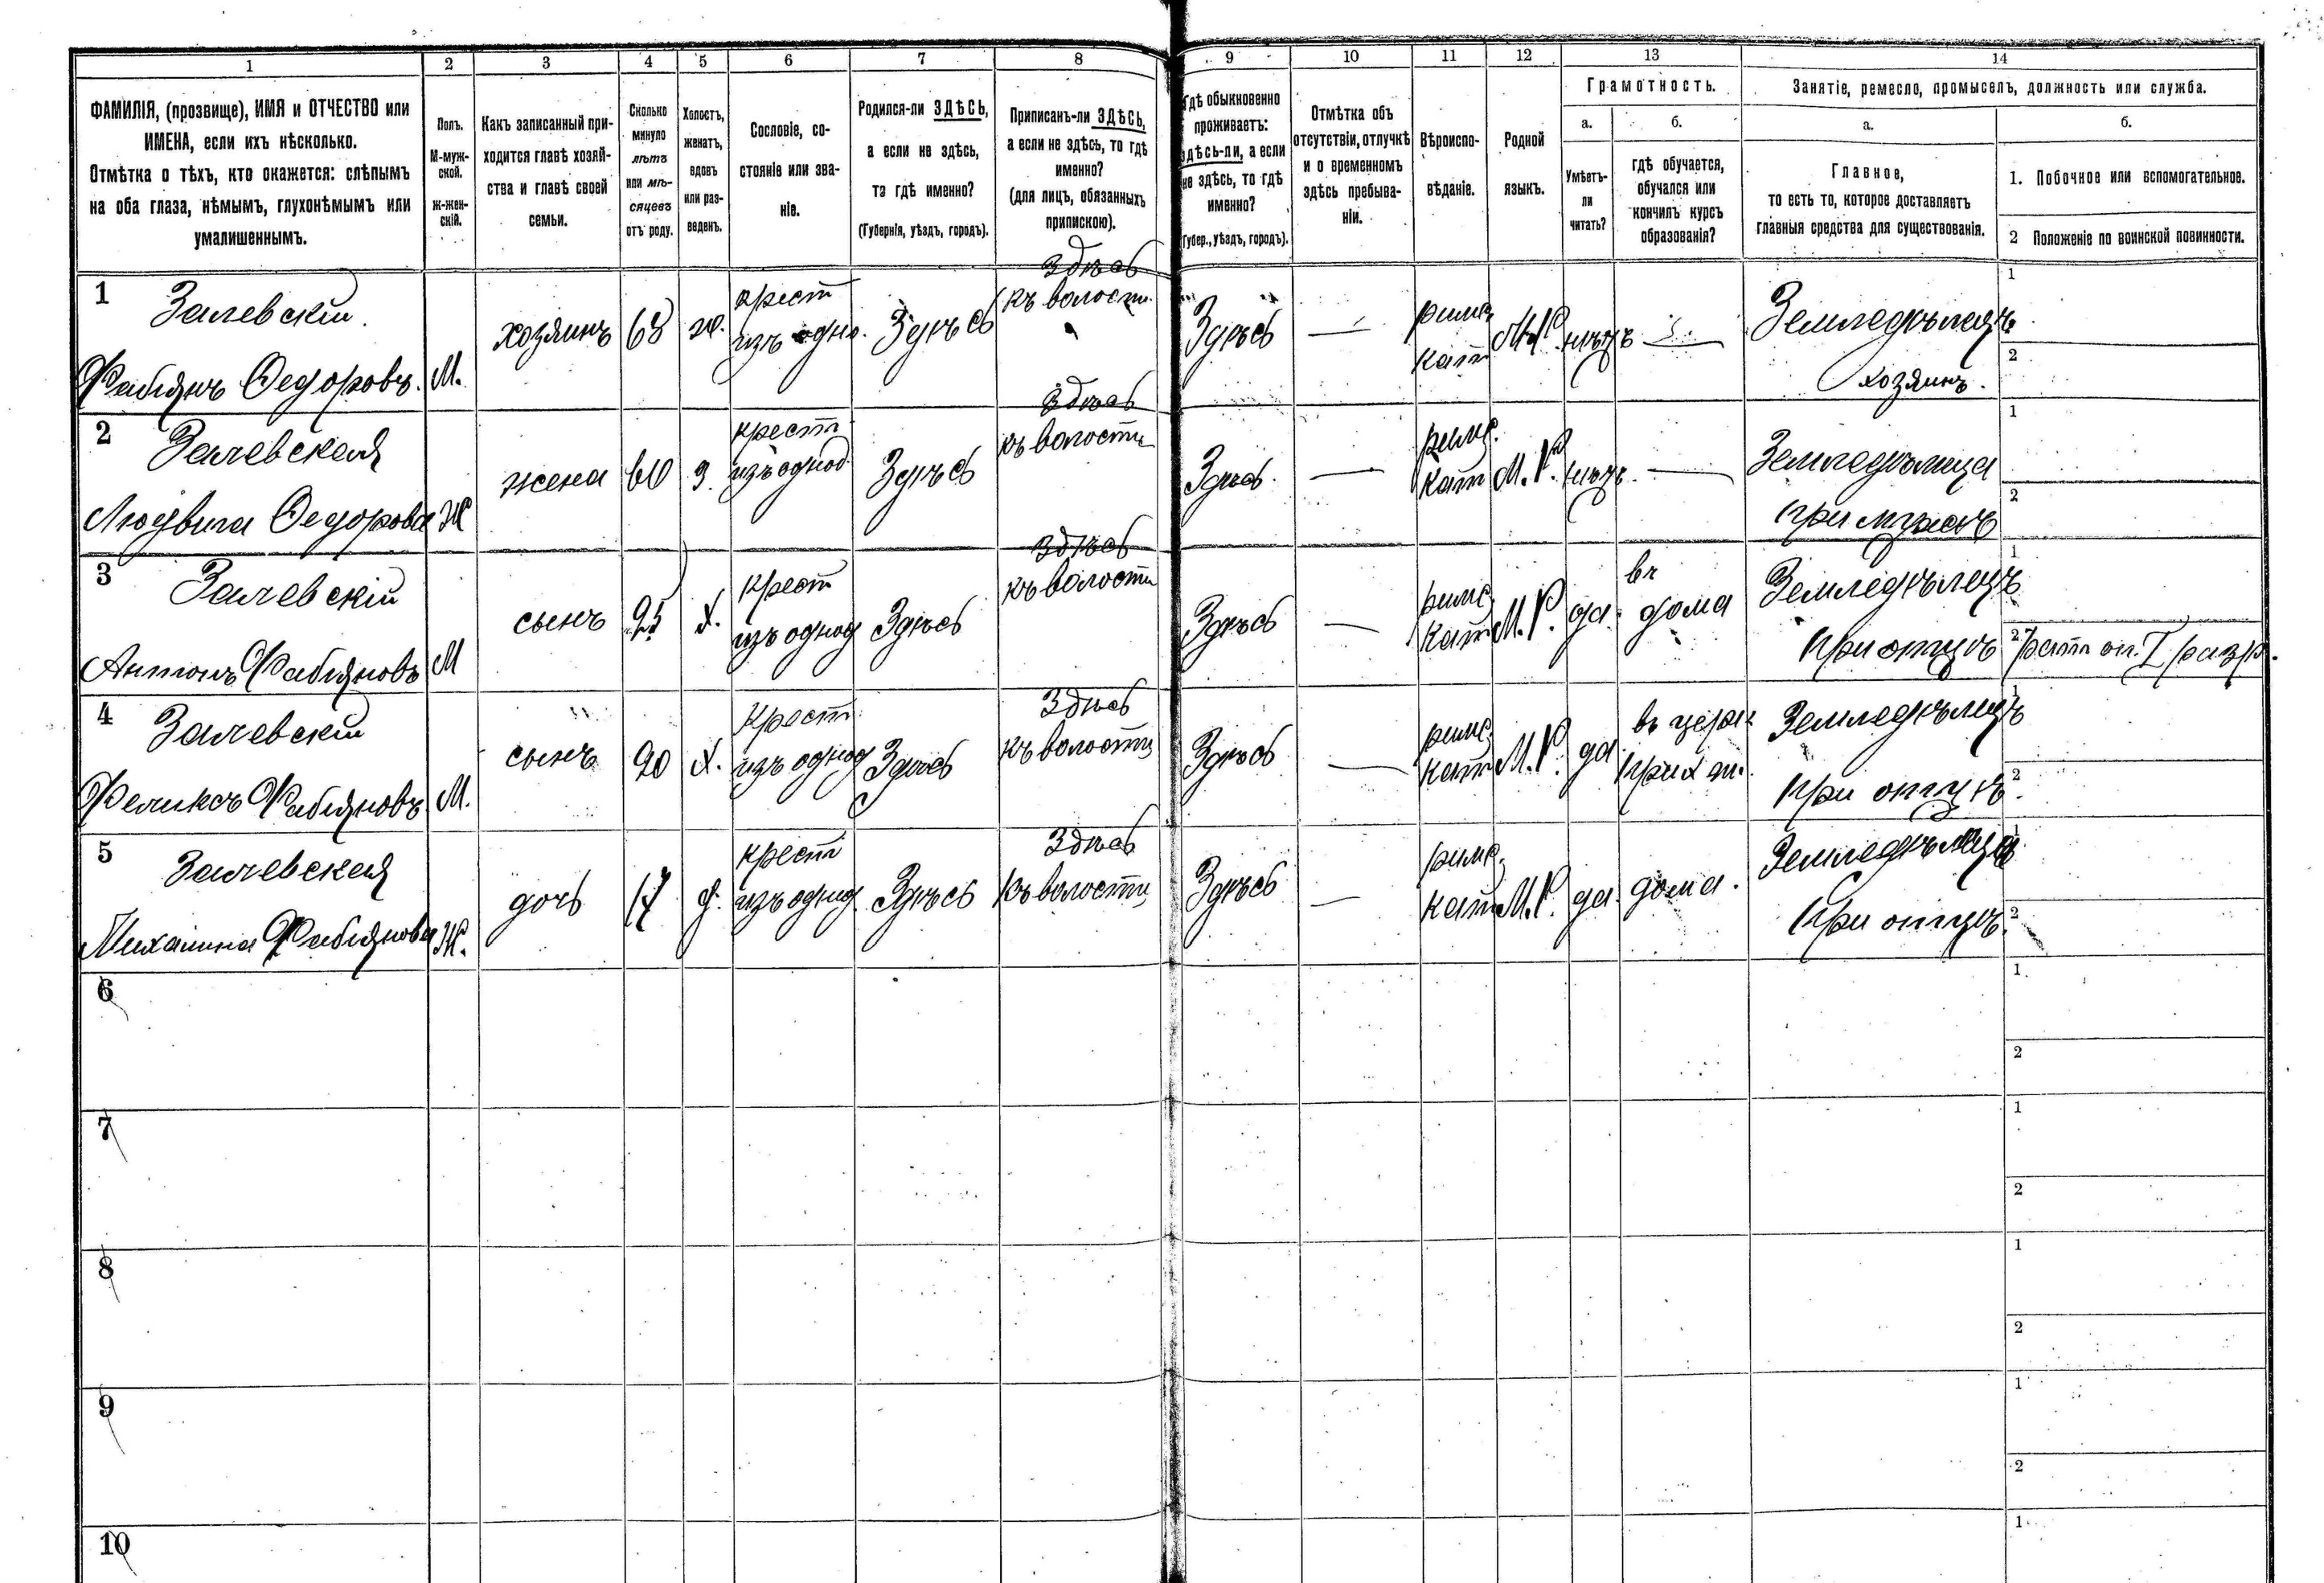 1 2 3 4 5 6 7 8 9 10 11 12 13 14
ФАМИЛІЯ, (прозвище), ИМЯ и ОТЧЕСТВО или
ИМЕНА, если ихъ нѣсколько.
Отмѣтка о тѣхъ, кто окажется: слѣпымъ
на оба глаза, нѣмымъ, глухонѣмымъ или
умалишеннымъ.
Полъ.
М-муж-
ской.
ж-жен-
скій.
Какъ записанный при-
ходится главѣ хозяй-
ства и главѣ своей
семьи.
Сколько
минуло
лѣтъ
или мѣ-
сяцевъ
отъ роду.
Холостъ,
женатъ,
вдовъ
или раз-
веденъ.
Сословіе, со-
стояніе или зва-
ніе.
Родился-ли ЗДѢСЬ,
а если не здѣсь,
то гдѣ именно?
(Губернія, уѣздъ, городъ).
Приписанъ-ли ЗДѢСЬ,
а если не здѣсь, то гдѣ
именно?
(для лицъ, обязанныхъ
припискою).
Гдѣ обыкновенно
проживаетъ:
здѣсь-ли, а если
не здѣсь, то гдѣ
именно?
(Губер., уѣздъ, городъ).
Отмѣтка объ
отсутствіи, отлучкѣ
и о временномъ
здѣсь пребыва-
ніи.
Вѣроиспо-
вѣданіе.
Родной
языкъ.
Грамотность.
а.
Умѣетъ-
ли
читать?
б.
гдѣ обучается,
обучался или
кончилъ курсъ
образованія?
Занятіе, ремесло, промыселъ, должность или служба.
а.
Главное,
то есть то, которое доставляетъ
главныя средства для существованія.
б.
1. Побочное или вспомогательное.
2 Положеніе по воинской повинности.
1 Залевскій
Фабіянъ Федоровъ. М.
хозяинъ 68 ж.
крест
изъ одно.
Здѣсь
Здѣсь
къ волости
Здѣсь —
римс.
кат
М.Р. нѣтъ —
Земледѣлецъ
хозяинъ.
1
2
2 Залевская
Людвига Федорова Ж
жена 60 З.
крест
изъ однод.
Здѣсь
Здѣсь
къ волости
Здѣсь. —
римс.
кат
М.Р. нѣтъ. —
Земледѣлица
при мужѣ
1
2
3 Залевскій
Антонъ Фабіяновъ М
сынъ 25 Х.
крест
изъ однод
Здѣсь
Здѣсь
къ волости
Здѣсь —
римс.
кат
М.Р. да.
дома
Земледѣлецъ
при отцѣ
1
2 рат. оп. I разр.
4 Залевскій
Феликсъ Фабіяновъ. М.
сынъ 20 Х.
Крест
изъ однод
Здѣсь
Здѣсь
къ волости
Здѣсь —
римс.
кат
М.Р. да
въ церк
прих
Земледѣлецъ
при отцѣ.
1
2
5 Залевская
Михалина Фабіянова Ж.
дочь 17 д.
крест
изъ однод
Здѣсь
Здѣсь
къ волости
Здѣсь —
римс.
кат
М.Р. да. дома.
При отцѣ.
1
2
6
1
2
7
1
2
8
1
2
9
1
2
10
1